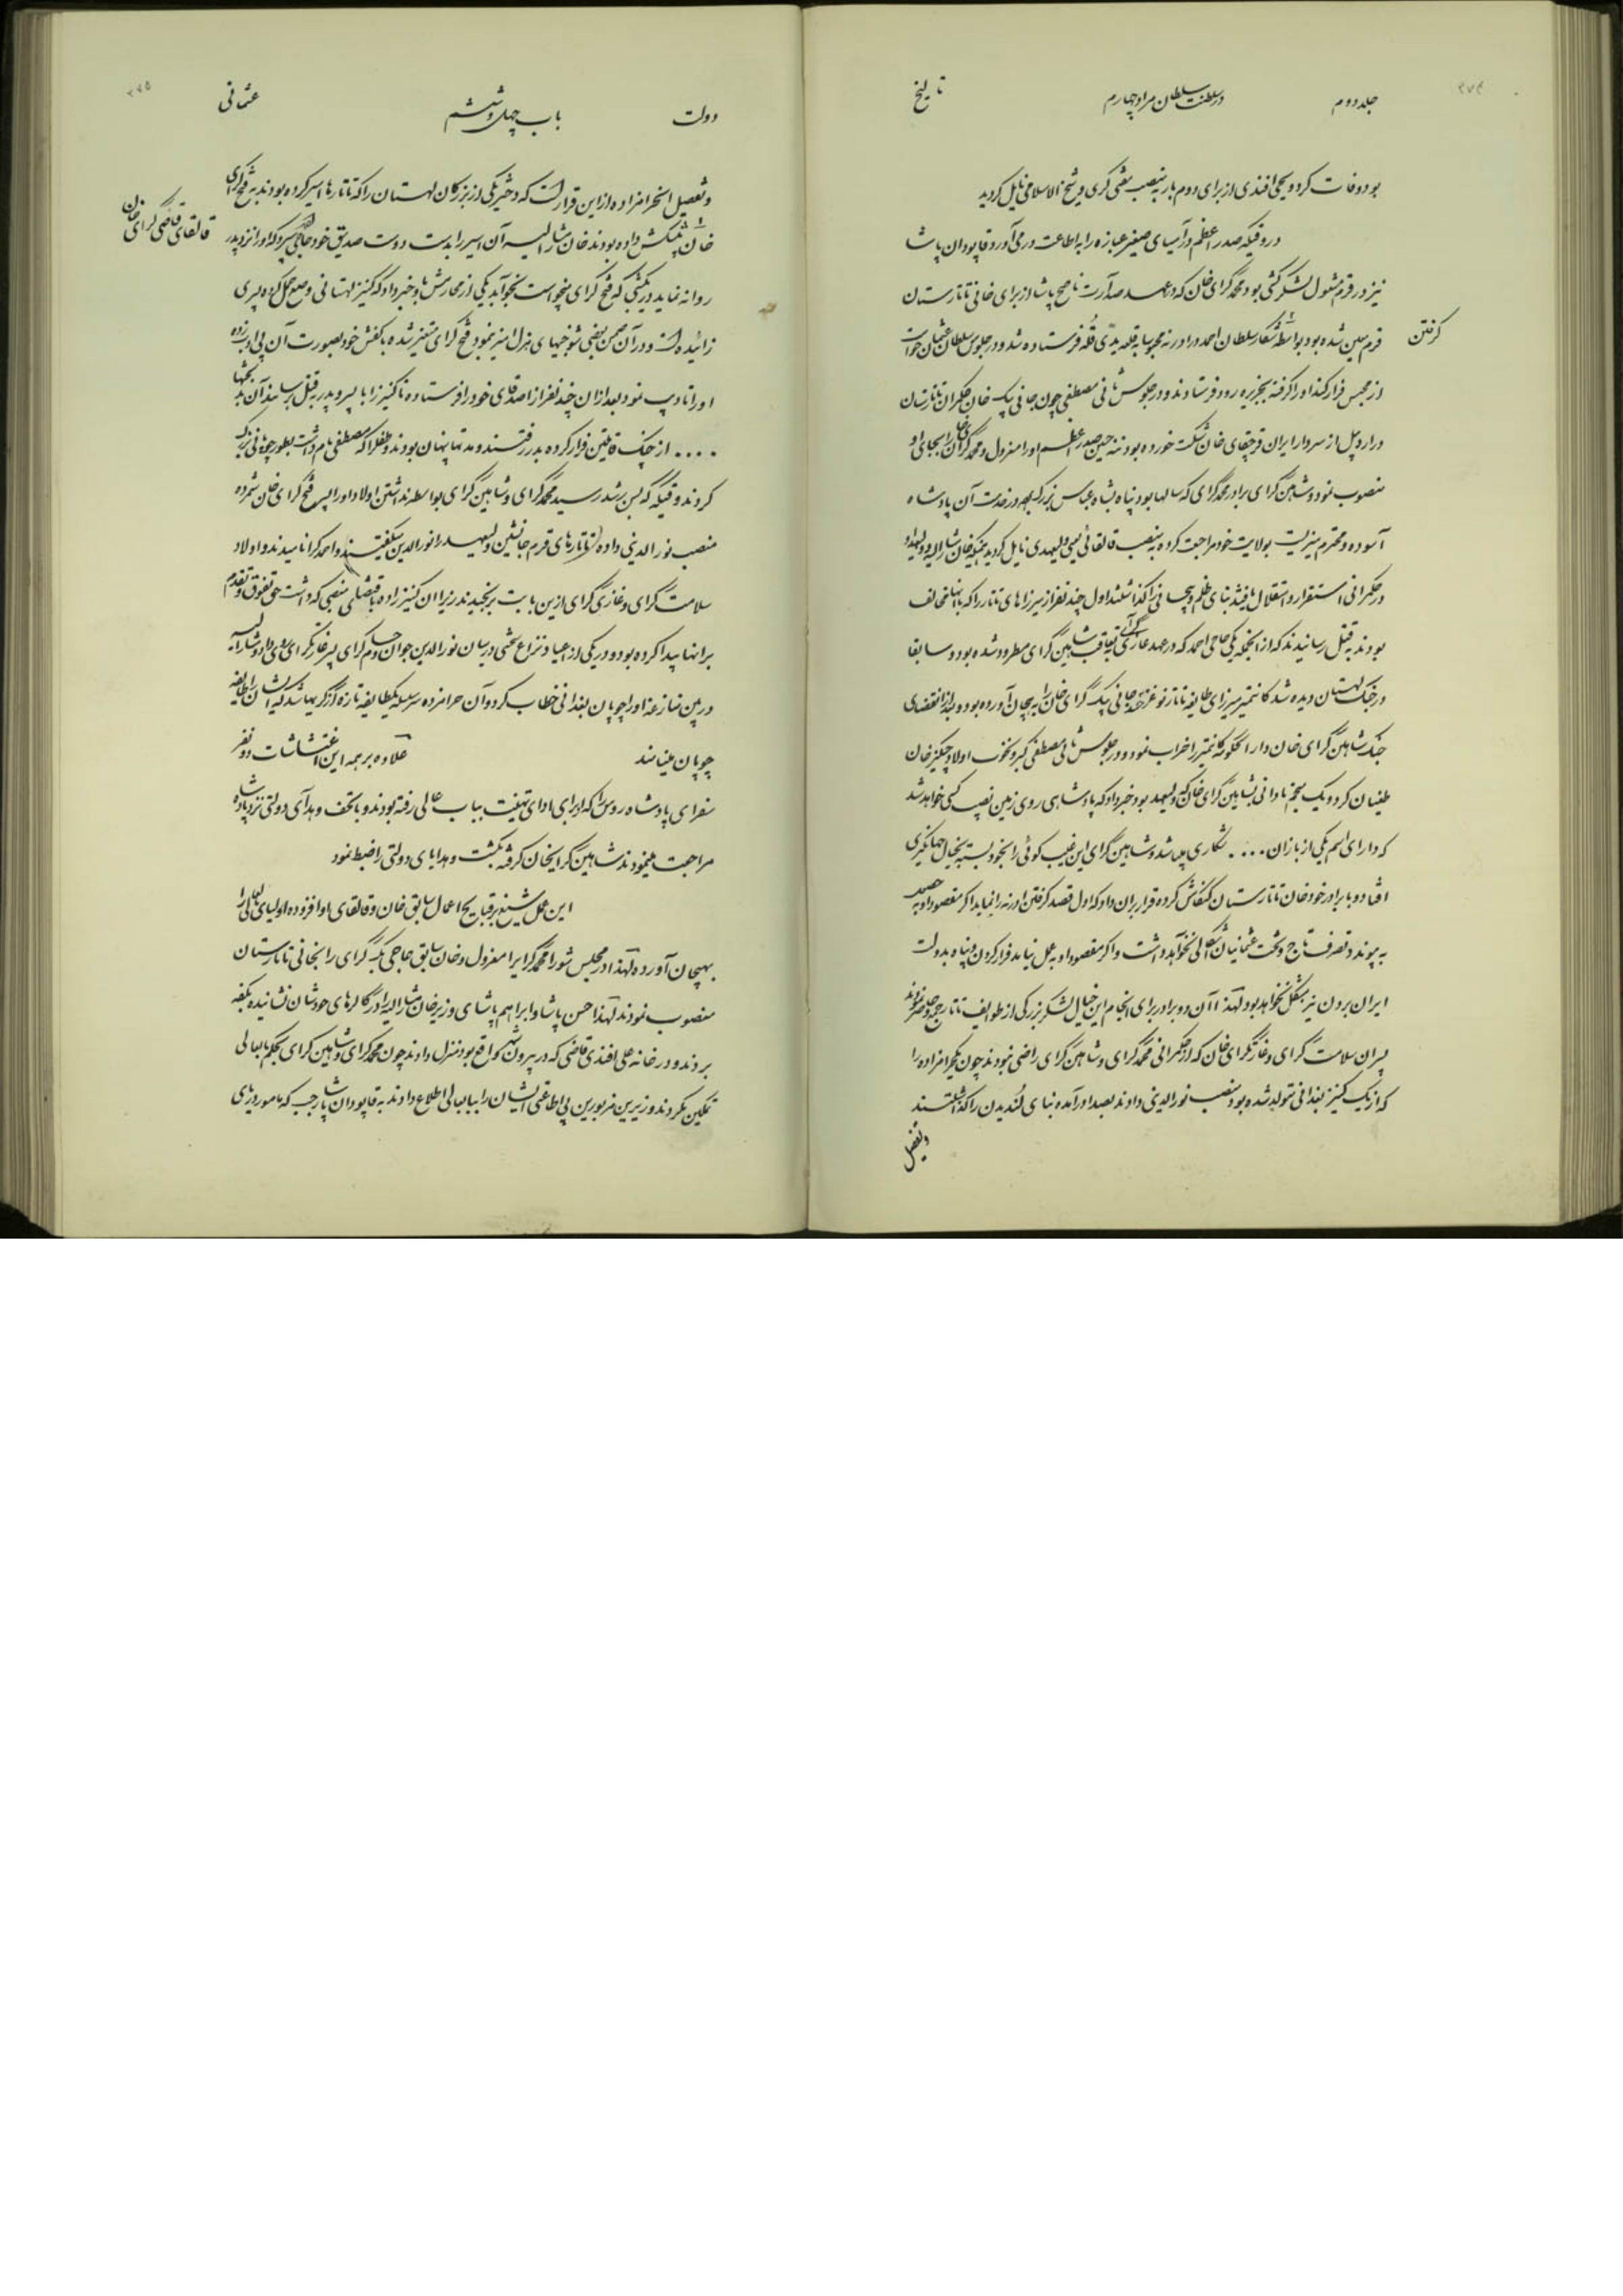 ۲۷۴
جلد دوم
در سلطنت سلطان مراد چهارم
تاریخ
بود وفات کرد و یحیی افندی از برای دوم بار بمنصب مفتی گری و شیخ الاسلامی نایل گردید
در وقتیکه صدر اعظم در آسیای صغیر عبازه را به اطاعت در می آورد قاپودان پاشا
نیز در قرم مشغول لشکر کشی بود محمد گرای خان که در عهد صدارت ناصح پاشا از برای خانی تاتارستان
قرم معین شده بود بواسطه شکار سلطان احمد در ادرنه محبوسا به قلعه یدی قله فرستاده شد و در جلوس سلطان عثمان خواست
گرفتن
از محبس فرار کند او را گرفته بجزیره رودز فرستادند و در جلوس ثانی مصطفی چون جانی بیک خان حکمران تاتارستان
در اردبیل از سردار ایران قرچقای خان شکست خورده بود حسین صدر اعظم او را معزول و محمد گرای خان را بجای او
منصوب نمود و شاهین گرای برادر محمد گرای که سالها بود پناه بشاه عباس بزرگ در خدمت آن پادشاه
آسوده و محترم میزیست بولایت خود مراجعت کرده بمنصب قالقائی یعنی ولیعهدی نایل گردید همینکه خان مشار الیه و ولیعهد او
در حکمرانی استقرار و استقلال یافتند بنای ظلم و بیحسابی را گذاشتند اول چند نفر از میرزاهای تاتار را که با آنها مخالف
بودند بقتل رسانیدند که از آنجمله یکی حاجی احمد که در عهد غازی گرای بتعاقب شاهین گرای مطرود شده بود و سابقا
در جنگ لهستان دیده شد کانتمیر میرزای طایفه تاتار نوغز عهد جانی بیک گرای خان را به هیجان آورده بود و بعد از انقضای
جنگ شاهین گرای خان دار الحکومه کانتمیر را خراب نمود و در جلوس ثانی مصطفی کبر و نخوت اولاد چنگیز خان
طغیان کرد و یک منجم نادانی بشاهین گرای خان که ولیعهد بود خبر داد که پادشاهی روی زمین نصیب کسی خواهد شد
که دارای اسم یکی از بازان .... شکاری باشد و شاهین گرای این غیب گوئی را بخود بسته بخیال جهانگیری
افتاد و با برادر خود خان تاتارستان کنگاش کرده قرار بران داد که اول قصد گرفتن ادرنه را نماید اگر مقصود او بر حصول
به پیوندد تصرف تاج و تخت عثمانیان اشکالی نخواهد داشت و اگر مقصود او بعمل نیاید فرار کردن و پناه بدولت
ایران بردن نیز مشکل نخواهد بود لهذا آن دو برادر برای انجام این خیال لشکر بزرگی از طوایف تاتار جمع و حاضر نمودند
پسران سلامت گرای و غازیگرای خان که از حکمرانی محمد گرای و شاهین گرای راضی نبودند چون یک حرامزاده را
که از یک کنیز بغدانی متولد شده بود منصب نور الدینی دادند بصدا در آمده بنای لندیدن را گذاشتند
و تفصیل
۲۷۵
دولت
باب چهل و ششم
عثمانی
و تفصیل این حرامزاده از این قرار است که دختر یکی از بزرگان لهستان را که تاتارها اسیر کرده بودند به فتح گرای
خان پیشکش داده بودند خان مشار الیه آن اسیر را بدست دوست صدیق خود حاجی سپرد که او را نزد پدر
قالقای قاضی گرای خان
روانه نماید در یکشبی که فتح گرای میخواست بخوابد یکی از محارمش باو خبر داد که کنیز لهستانی وضع حمل کرده پسری
زائیده است و در آن ضمن بعضی شوخیهای هزل آمیز نمود فتح گرای متغیر شده با کفش خود بصورت آن بی ادب زده
او را تادیب نمود بعد از ان چند نفر از اصدقای خود را فرستاده تا کنیز را با پسر و پدر بقتل برسانند آن بدبختها
.... از چنگ قاتلین فرار کرده بدر رفتند و مدتها پنهان بودند و طفل را که مصطفی نام داشت بطور چوپانی بزرگ
کردند وقتیکه بسن رشد رسید محمد گرای و شاهین گرای بواسطه نداشتن اولاد او را پسر فتح گرای خان شمرده
منصب نور الدینی داده تاتارهای قرم جانشین ولیعهد را نور الدین میگفتند و احمد گرا نامیدند و اولاد
سلامت گرای و غازی گرای ازین بابت برنجیدند زیرا ان کنیز زاده باقتضای منصبی که داشت حق تفوق و تقدم
بر آنها پیدا کرده بود و در یکی از اعیاد نزاع سختی در میان نور الدین جوان و حسام گرای پسر غازیگرای روی داد و مشار الیه
در بین منازعه او را چوپان بغدانی خطاب کرد و آن حرامزاده سر سلسله یکطایفه تازه از گریها شد که ایشان را طایفه
چوپان مینامند
علاوه بر همه این اغتشاشات دو نفر
سفرای پادشاه روس را که از برای ادای تهنیت بباب عالی رفته بودند و با تحف و هدایای دولتی نزد پادشاه
مراجعت مینمودند شاهین گرایخان گرفته بکشت و هدایای دولتی را ضبط نمود
این عمل شنیع بر قبایح اعمال سابق خان و قالقای او افزوده اولیای بابعالی را
بهیجان آورده لهذا در مجلس شورا محمد گرای را معزول و خان سابق جانی بیک گرای را بخانی تاتارستان
منصوب نمودند لهذا حسن پاشا و ابراهیم پاشای وزیر خان مشار الیه را در گالرهای خودشان نشانیده بکفه
بردند و در خانه علی افندی قاضی که در بیرون شهر واقع بود منزل دادند چون محمد گرای و شاهین گرای بحکم بابعالی
تمکین نکردند وزیرین مزبورین بی اطاعتی ایشان را ببابعالی اطلاع دادند به قاپودان پاشا رجب که مامور دریای